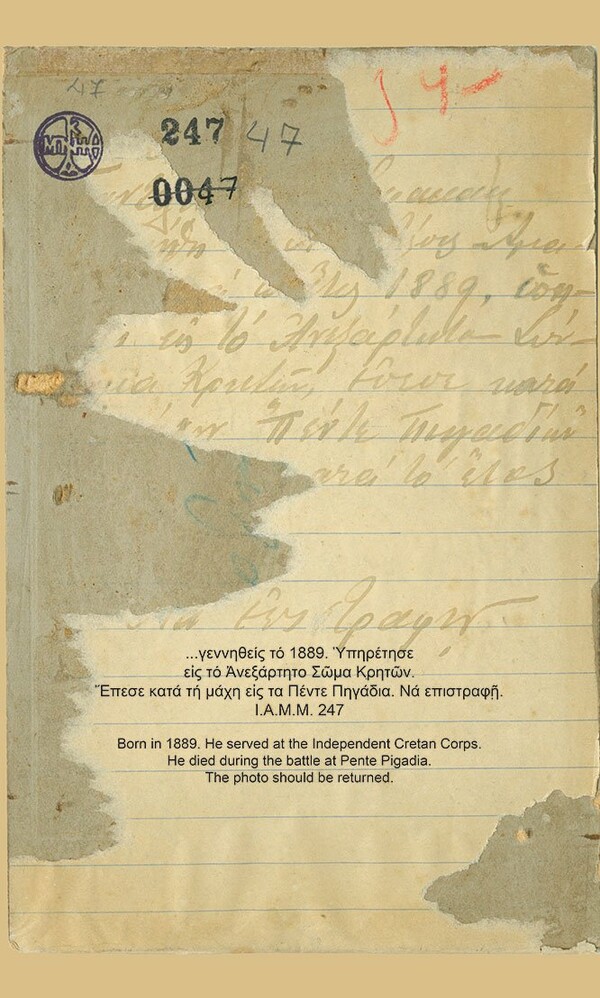 47
14
247 47
0047
1889,
εἰς τὸ Ἀνεξάρτητο Σῶ-
Κρητῶν, ἔπεσε κατὰ
Πέντε Πηγαδιῶν
κατὰ τὸ ἔτος
Νὰ ἐπιστραφῇ.
...γεννηθείς τό 1889. Ὑπηρέτησε
είς τό Ἀνεξάρτητο Σῶμα Κρητῶν.
Ἔπεσε κατά τή μάχη είς τα Πέντε Πηγάδια. Νά επιστραφῇ.
Ι.Α.Μ.Μ. 247
Born in 1889. He served at the Independent Cretan Corps.
He died during the battle at Pente Pigadia.
The photo should be returned.